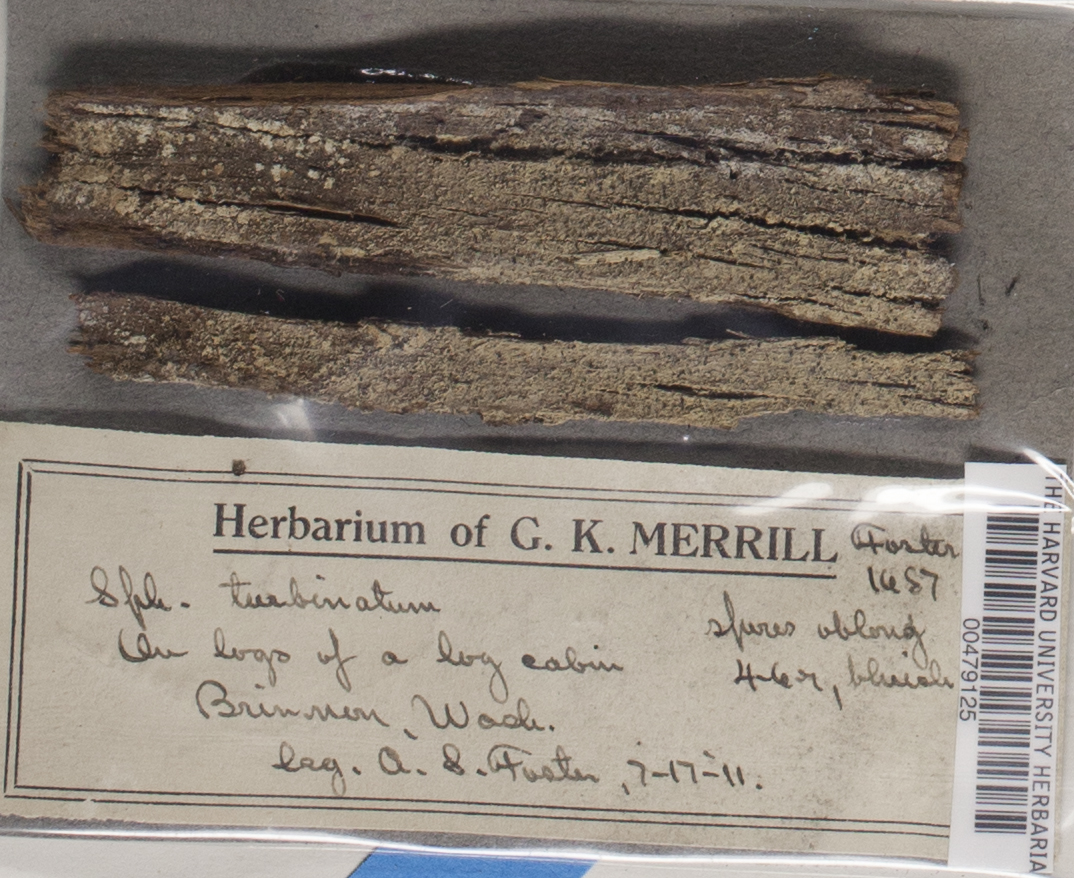 Herbarium of G. K. MERRILL
Foster
1687
Sph. turbinatum
spores oblong
On logs of a log cabin
4-6, bluish
Brinnon, Wash.
leg. A. S. Foster, 7-17-11.
THE HARVARD UNIVERSITY HERBARIA
00479125